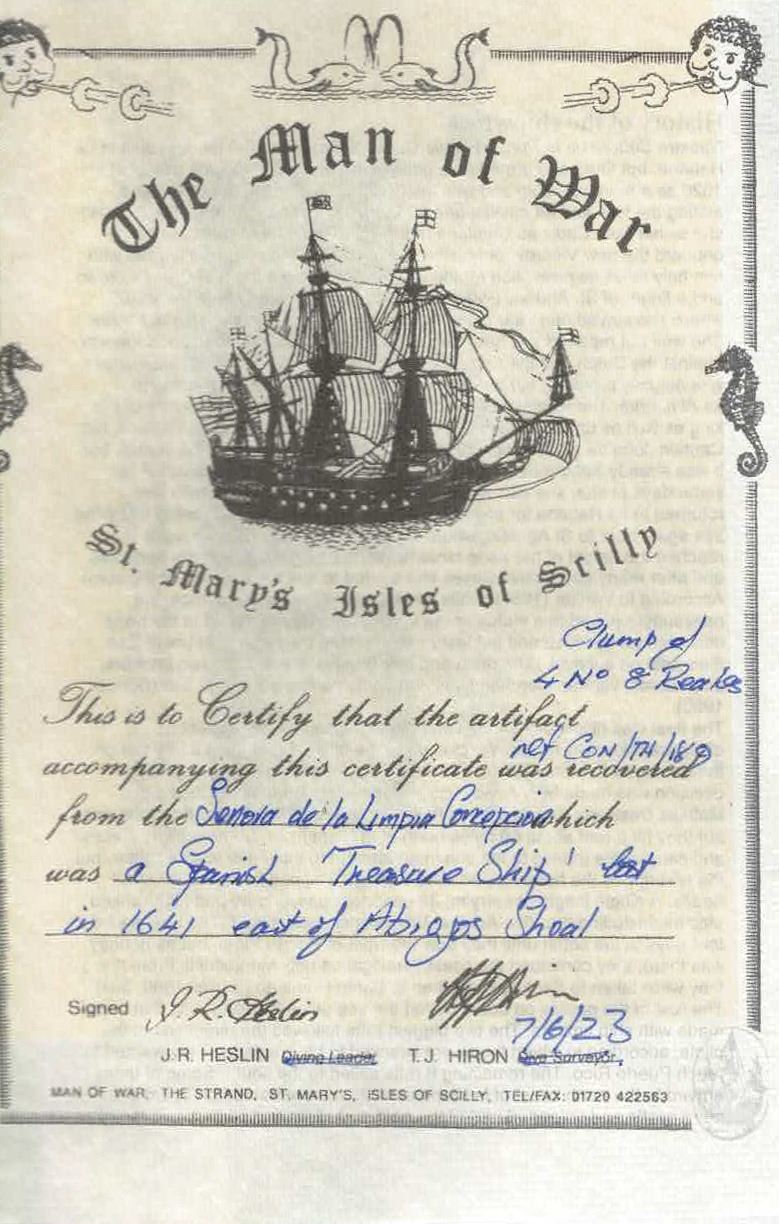 The Man of War
St. Mary's Isles of Scilly
Clump of
4 No 8 Reales
This is to Certify that the artifact
ref CON/TH/189
accompanying this certificate was recovered
from the Senora de la Limpia Concepcion which
was a Spanish 'Treasure Ship' lost
in 1641 east of Abrojos Shoal
Signed J.R. Heslin
7/6/23
J.R. HESLIN Diving Leader T.J. HIRON Dive Surveyor.
MAN OF WAR, THE STRAND, ST. MARY'S, ISLES OF SCILLY, TEL/FAX: 01720 422563